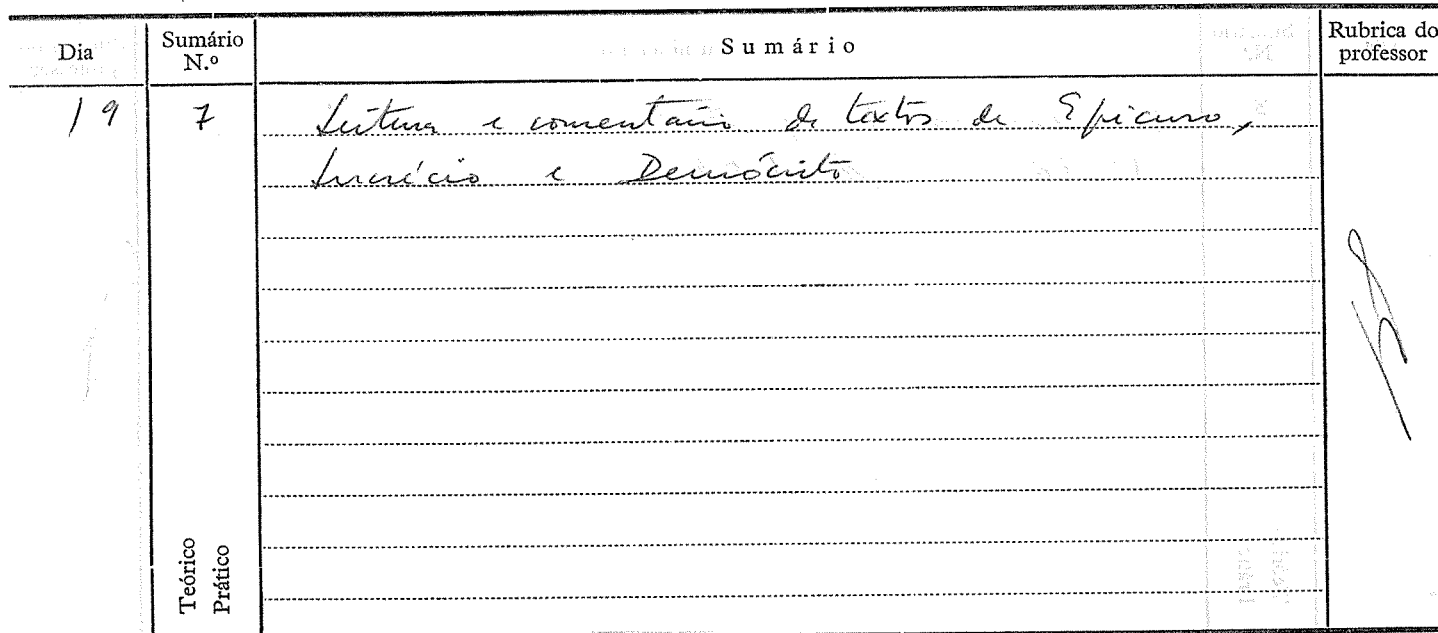 Dia
Sumário N.º
Sumário
Rubrica do professor
19
7
Leitura e comentário de textos de Epicuro,
Lucrécio e Demócrito
Teórico
Prático